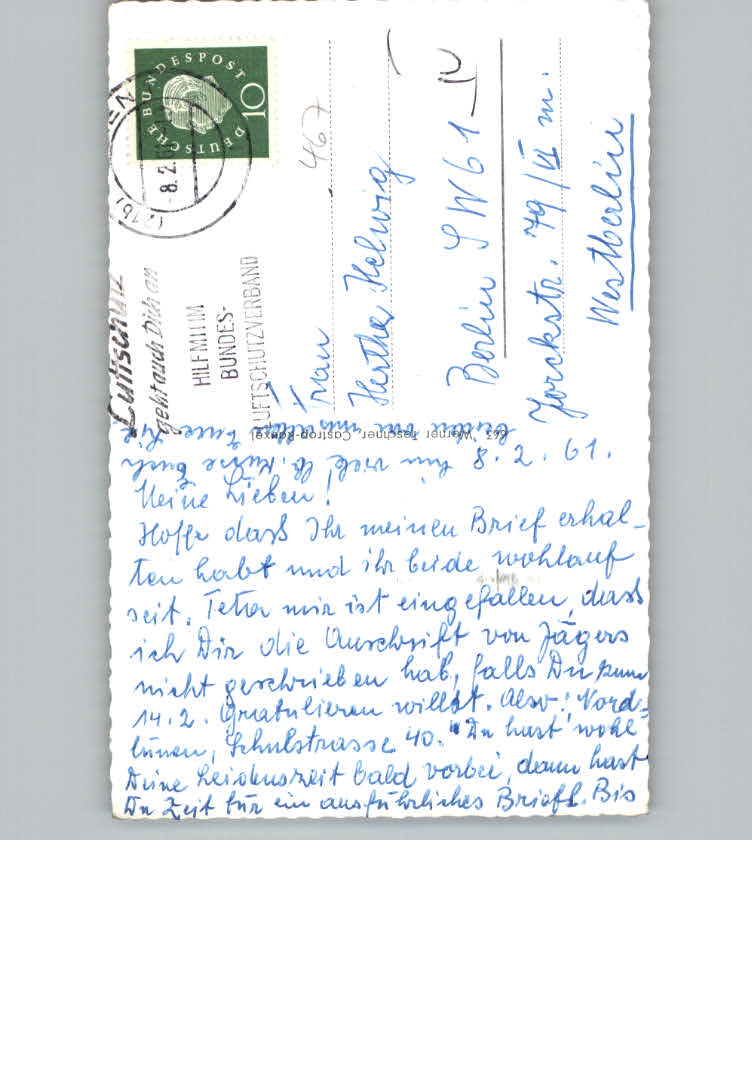 DEUTSCHE BUNDESPOST DEUTSCHE
10
(21b)
-8.2.61
467
Luftschutz
geht auch Dich an
HILF MIT IM
BUNDES-
LUFTSCHUTZVERBAND
Frau
Hertha Helwig
Berlin SW 61
IV
Yorckstr. 79/III m.
Westberlin
Werner Teschner, Castrop-Rauxel
8.2.61.
Meine Lieben!
Hoffe dass Ihr meinen Brief erhal-
ten habt und ihr beide wohlauf
seit. Teta mir ist eingefallen, dass
ich Dir die Anschrift von Jägers
nicht geschrieben hab, falls Du zum
14.2. gratulieren willst. Also: Nord-
lünen, Schulstrasse 40. Du hast wohl
Deine Leidenszeit bald vorbei, dann hast
Du Zeit für ein ausführliches Briefl. Bis
hin viel lb. Küsse Euch
beiden von